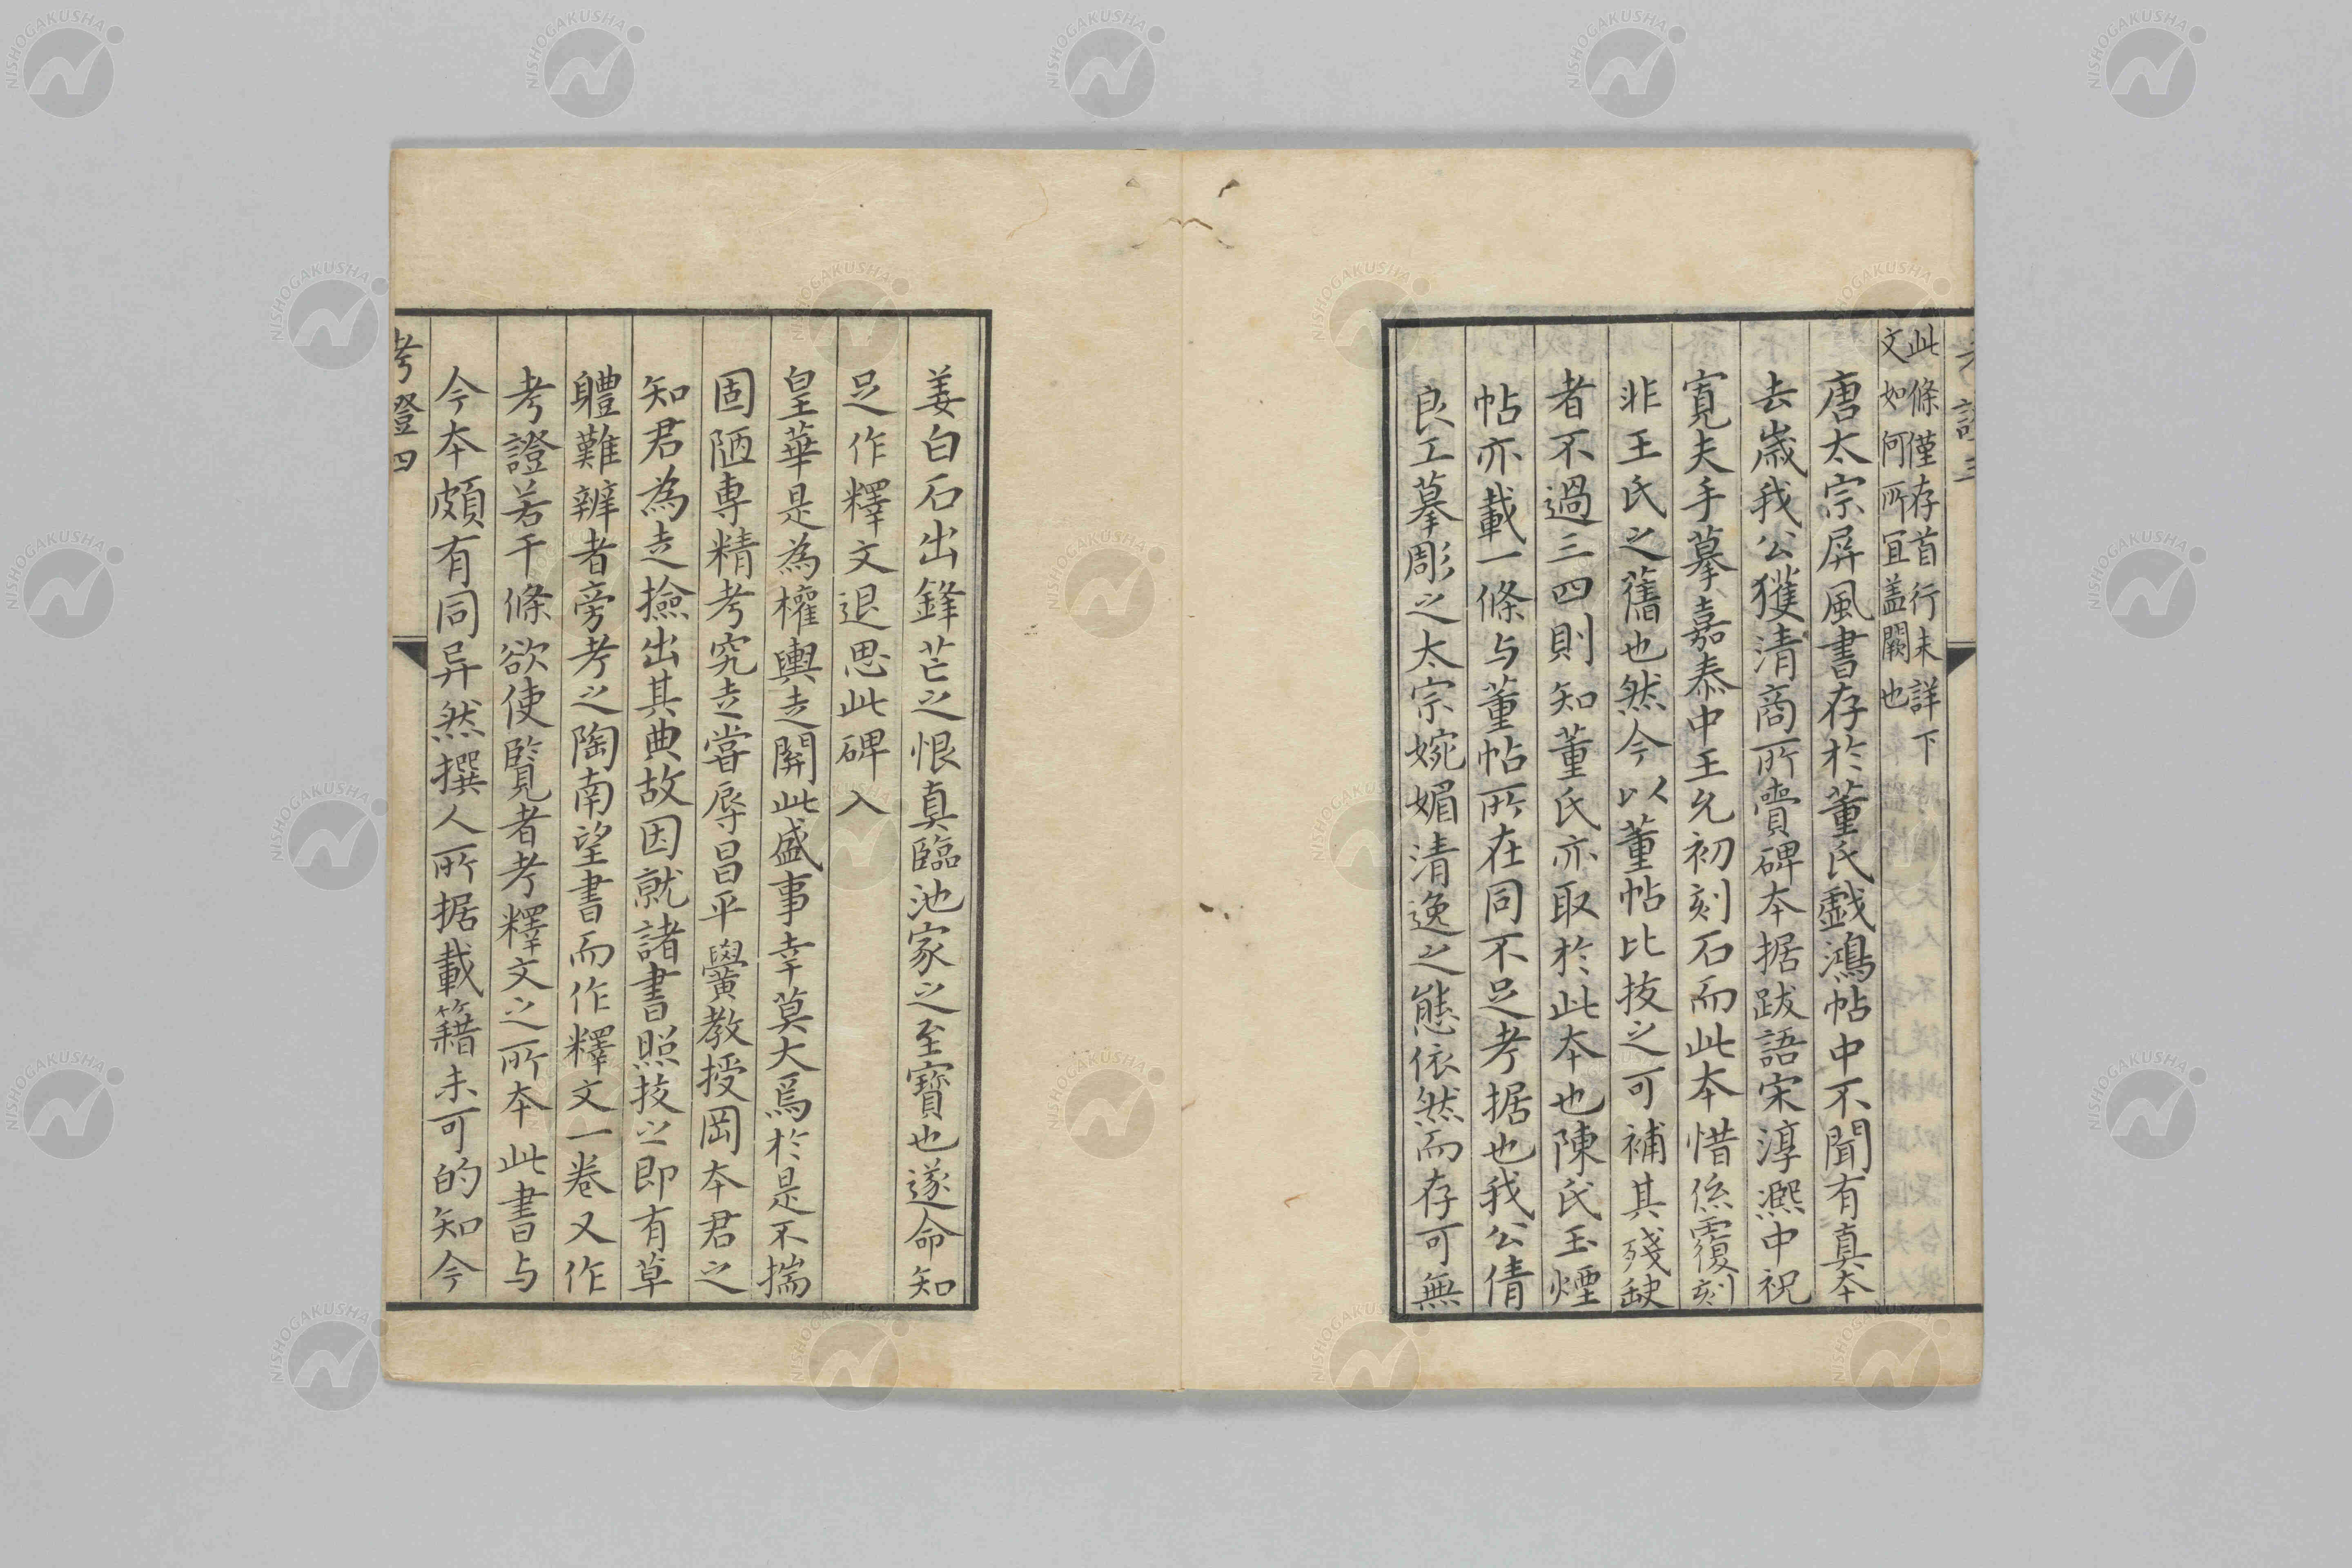 考證三
此條僅存首行未詳下
文如何所冝盖闕也
唐太宗屏風書存於董氏戲鴻帖中不聞有真本
去歳我公獲清商所賷碑本据跋語宋淳熈中祝
寛夫手摹嘉泰中王允初刻石而此本惜係覆刻
非王氏之舊也然今以董帖比技之可補其殘缺
者不過三四則知董氏亦取於此本也陳氏玉煙
帖亦載一條与董帖所在同不足考据也我公倩
良工摹彫之太宗婉媚清逸之態依然而存可無
姜白石出鋒芒之恨真臨池家之至寶也遂命知
足作釋文退思此碑入
皇華是為權輿走開此盛事幸莫大焉於是不揣
固陋専精考究走甞辱昌平黌教授岡本君之
知君為走撿出其典故因就諸書照技之即有草
軆難辨者旁考之陶南望書而作釋文一巻又作
考證若干條欲使覧者考釋文之所本此書与
今本頗有同异然撰人所据載籍未可的知今
考證四